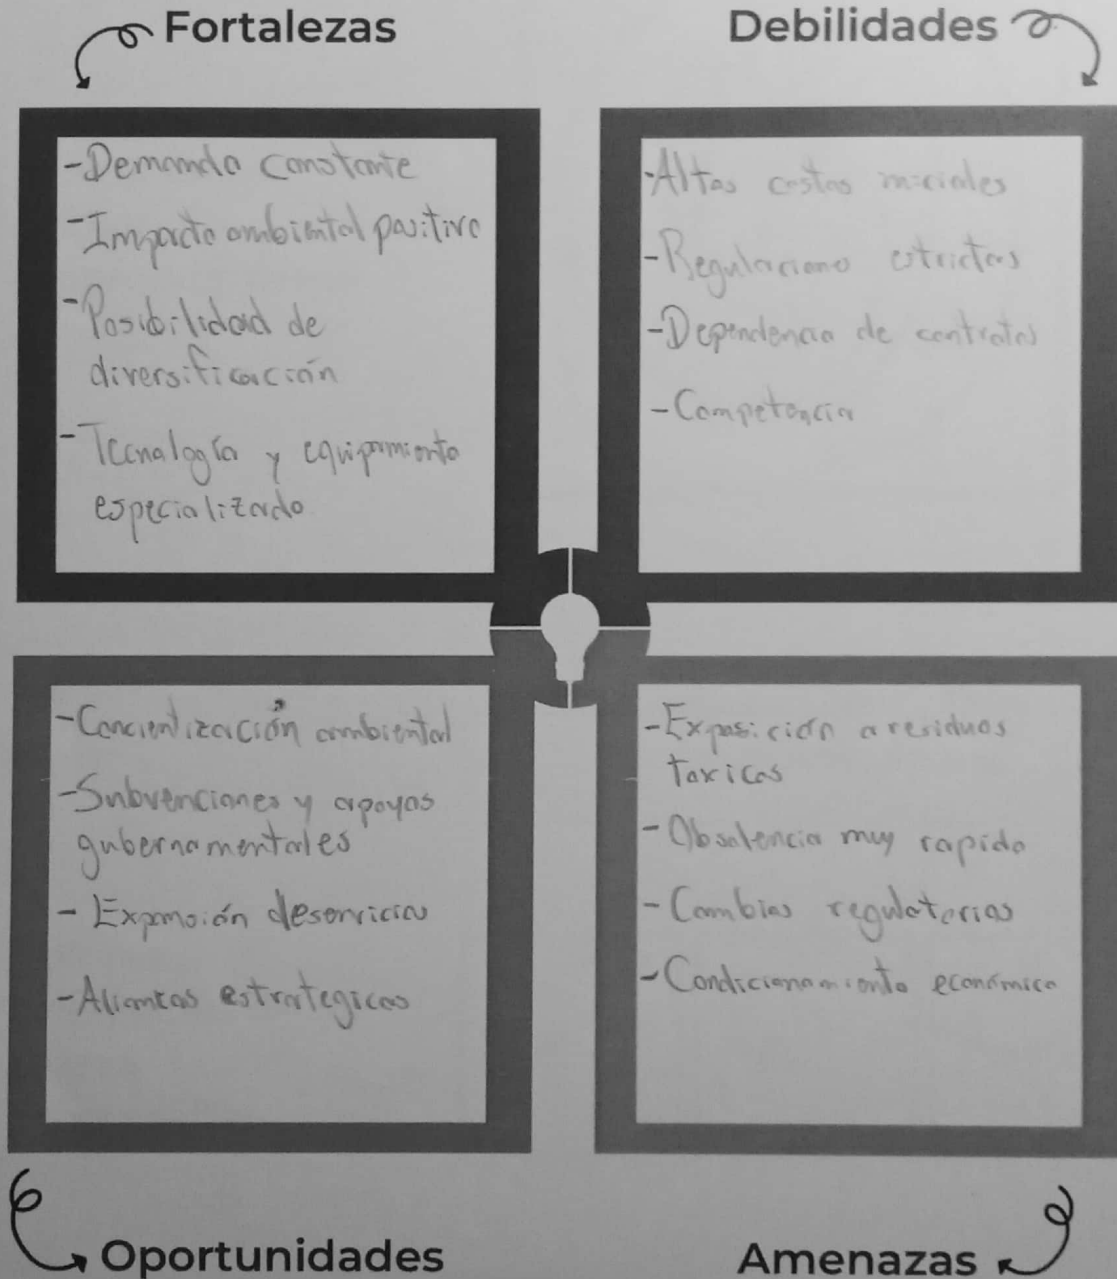 Fortalezas
-Demanda constante
-Impacto ambiental positivo
-Posibilidad de
diversificación
-Tecnología y equipamiento
especializado
Debilidades
-Altos costos iniciales
-Regulaciones estrictas
-Dependencia de contratos
-Competencia
-Concientización ambiental
-Subvenciones y apoyos
gubernamentales
-Expansión de servicios
-Alianzas estrategicas
Oportunidades
-Exposición a residuos
toxicos
-Obsolencia muy rapida
-Cambios regulatorios
-Condicionamiento económico
Amenazas